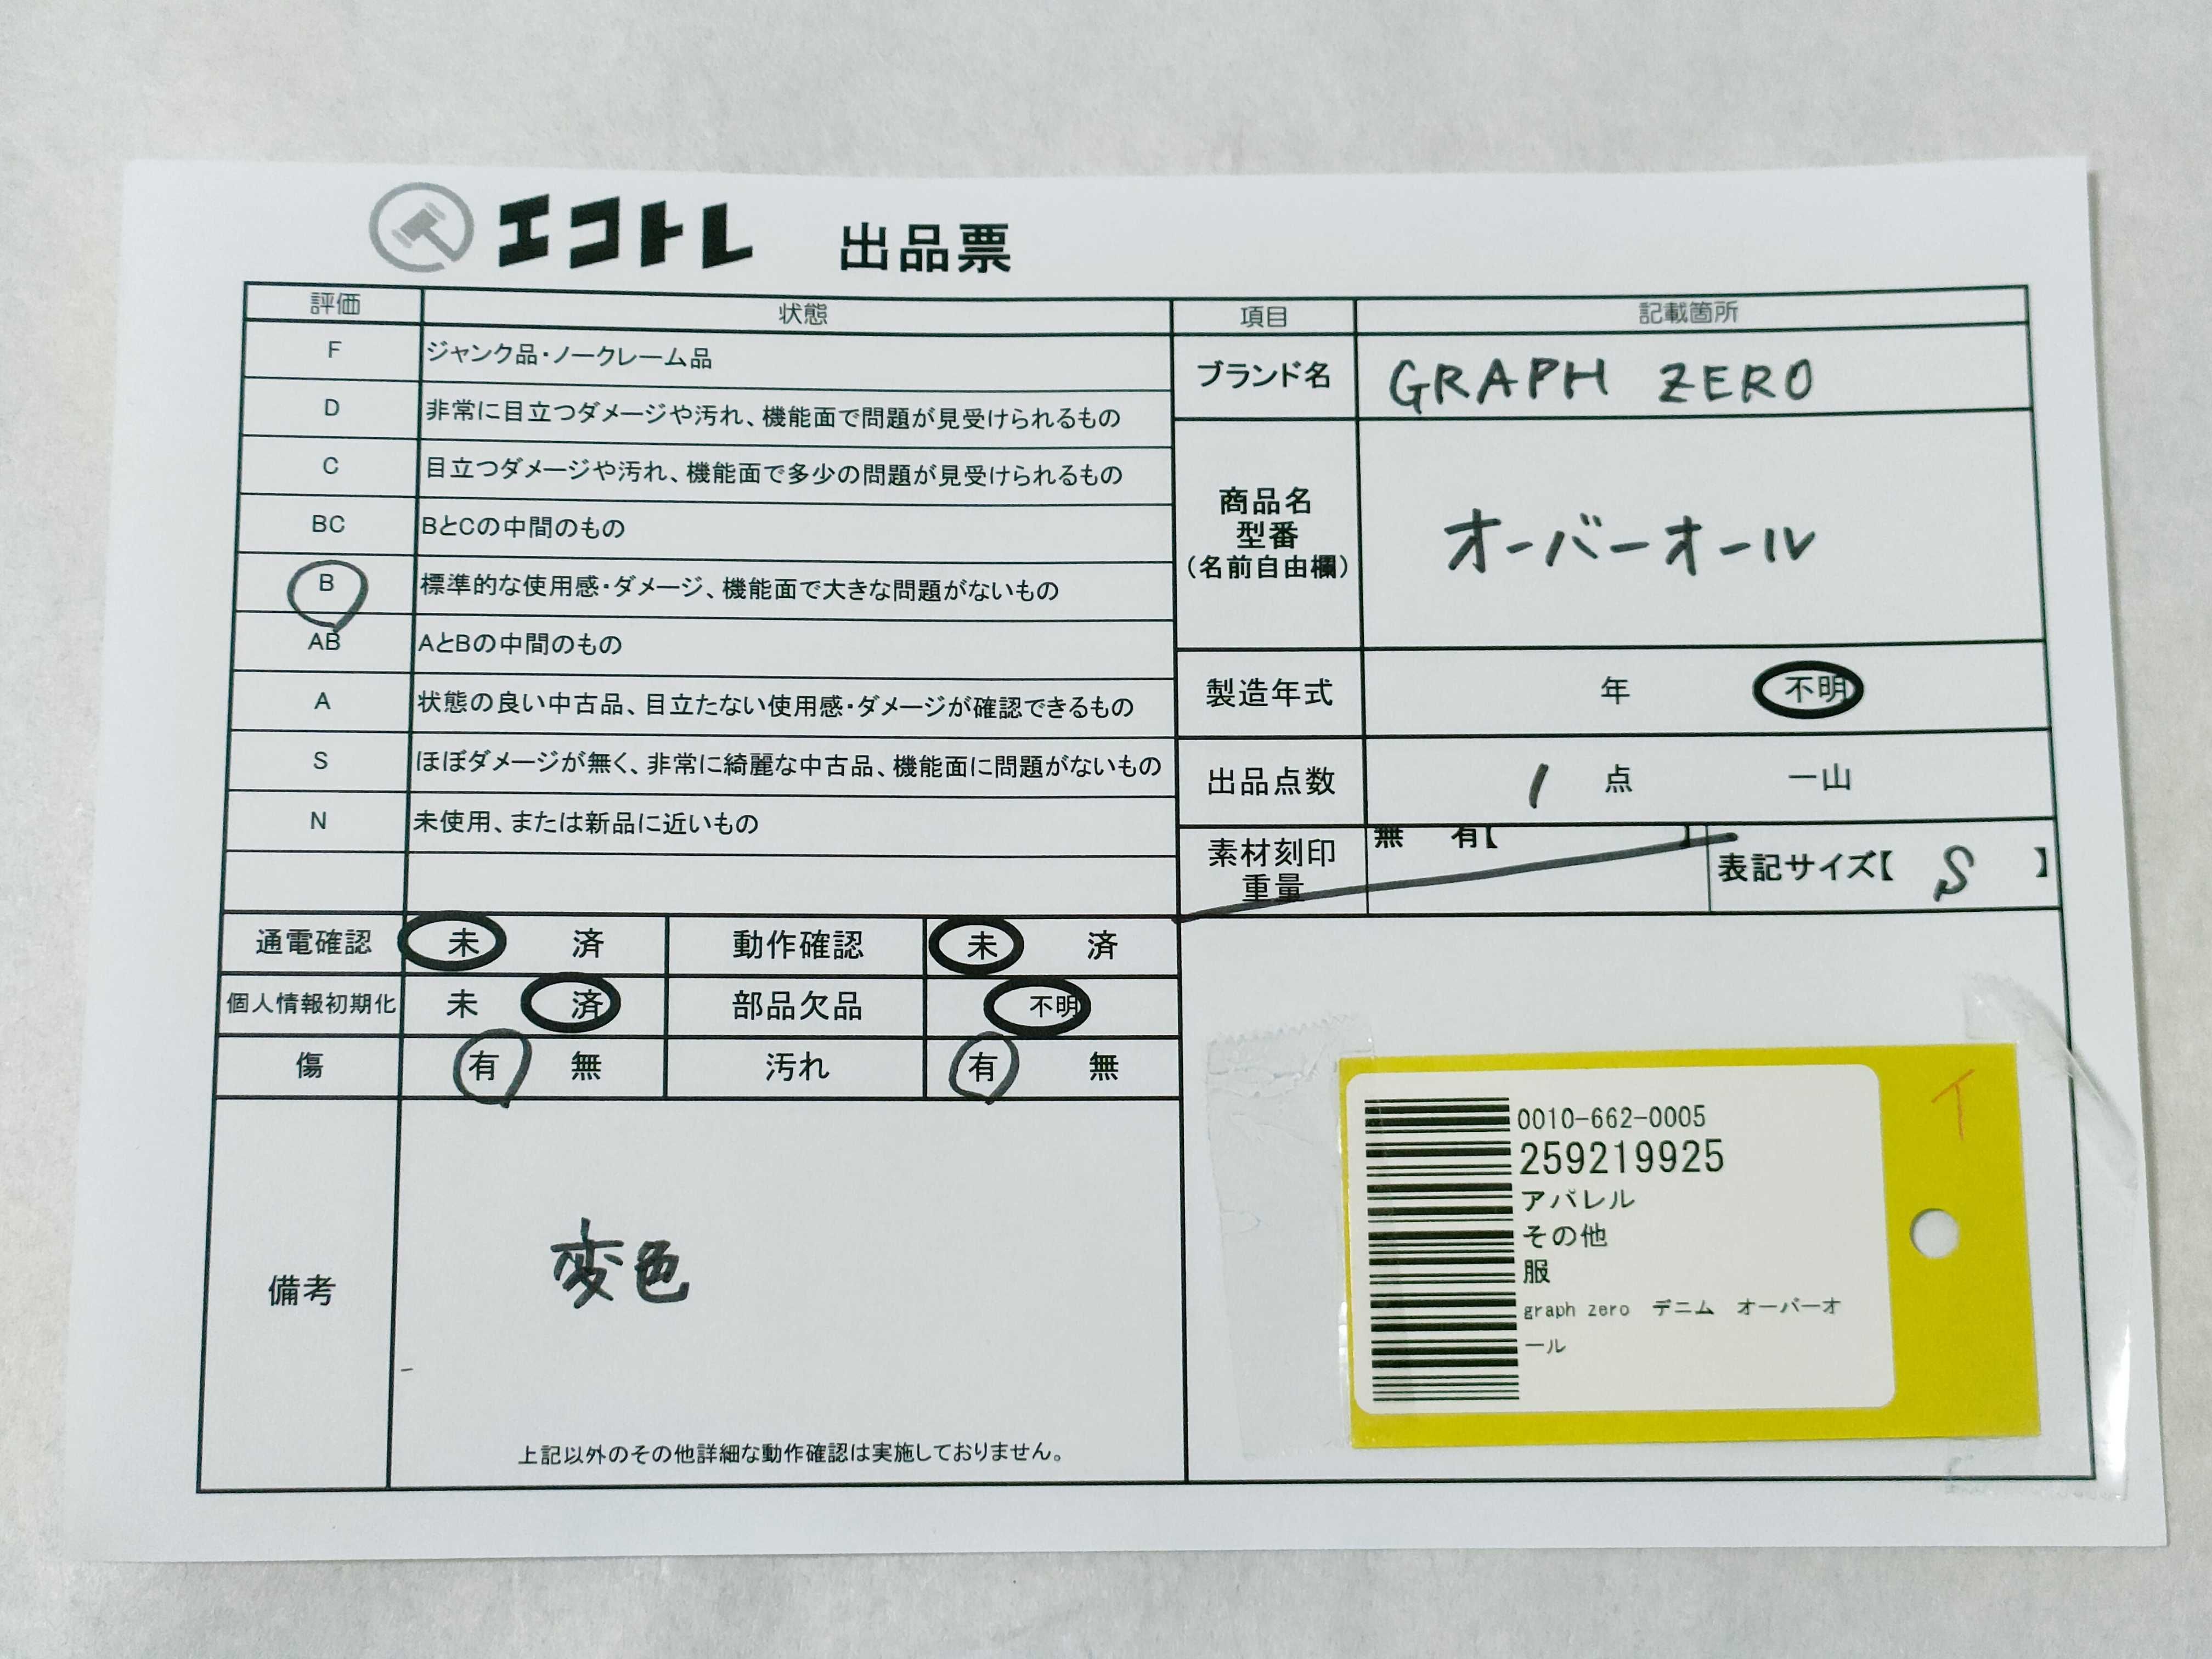 エコトレ 出品票
評価 状態
F ジャンク品・ノークレーム品
D 非常に目立つダメージや汚れ、機能面で問題が見受けられるもの
C 目立つダメージや汚れ、機能面で多少の問題が見受けられるもの
BC BとCの中間のもの
B 標準的な使用感・ダメージ、機能面で大きな問題がないもの
AB AとBの中間のもの
A 状態の良い中古品、目立たない使用感・ダメージが確認できるもの
S ほぼダメージが無く、非常に綺麗な中古品、機能面に問題がないもの
N 未使用、または新品に近いもの
項目 記載箇所
ブランド名 GRAPH ZERO
商品名
型番
(名前自由欄)
オーバーオール
製造年式 年 不明
出品点数 1 点 一山
素材刻印
重量
無 有【 】
表記サイズ【 S 】
通電確認 未 済 動作確認 未 済
個人情報初期化 未 済 部品欠品 不明
傷 有 無 汚れ 有 無
備考
変色
上記以外のその他詳細な動作確認は実施しておりません。
0010-662-0005
259219925
アパレル
その他
服
graph zero デニム オーバーオ
ール
イ